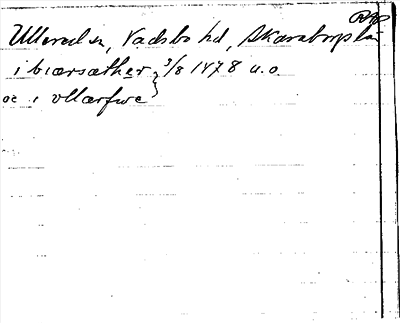 Ullervad sn, Vadsbo hd, Skaraborgs län
i biærsæther } 3/8 1478 u.o.
oc i vllærfwe